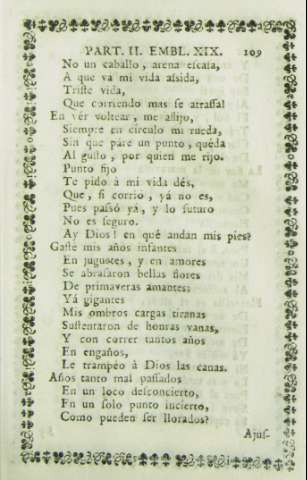 PART. II. EMBL. XIX. 109
No un caballo, arena escasa,
A que va mi vida assida,
Triste vida,
Que corriendo mas se atrassa!
En vèr voltear, me aflijo,
Siempre en circulo mi rueda,
Sin que pàre un punto, queda
Al gusto, por quien me rijo.
Punto fijo
Te pido à mi vida dès,
Que, si corriò, yà no es,
Pues passò yà, y lo futuro
No es seguro.
Ay Dios! en què andan mis pies?
Gastè mis años infantes
En juguetes, y en amores
Se abrasaron bellas flores
De primaveras amantes:
Yà gigantes
Mis ombros cargas tiranas
Sustentaron de honras vanas,
Y con correr tantos años
En engaños,
Le trampèo à Dios las canas.
Años tanto mal passados
En un loco desconcierto,
En un solo punto incierto,
Como pueden ser llorados?
Ajus-